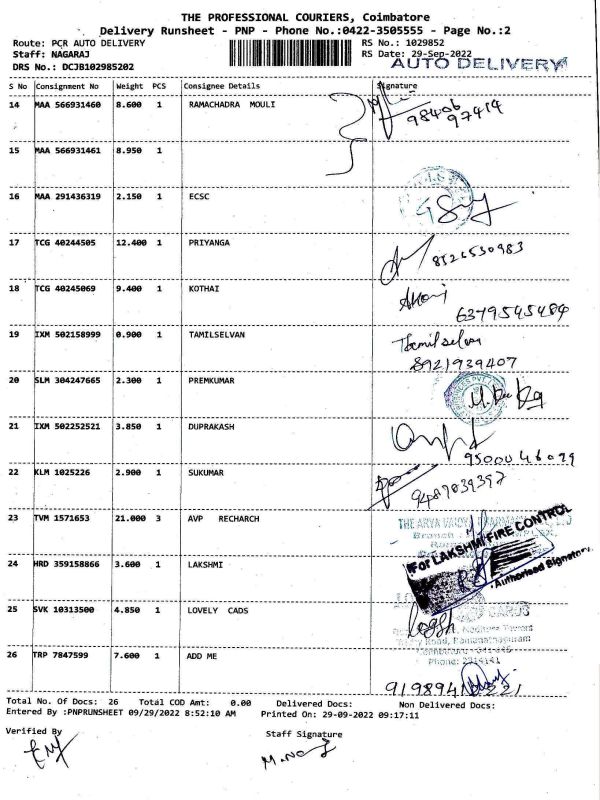 THE PROFESSIONAL COURIERS, Coimbatore
Delivery Runsheet - PNP - Phone No.:0422-3505555 - Page No.:2
Route: PCR AUTO DELIVERY RS No.: 1029852
Staff: NAGARAJ RS Date: 29-Sep-2022
DRS No.: DCJB102985202 AUTO DELIVERY
S No Consignment No Weight PCS Consignee Details Signature
14 MAA 566931460 8.600 1 RAMACHADRA MOULI
98406
97414
15 MAA 566931461 8.950 1
16 MAA 291436319 2.150 1 ECSC
17 TCG 40244505 12.400 1 PRIYANGA
8526530983
18 TCG 40245069 9.400 1 KOTHAI
6379545484
19 IXM 502158999 0.900 1 TAMILSELVAN Tamilselvan
8921939407
20 SLM 304247665 2.300 1 PREMKUMAR
21 IXM 502252521 3.850 1 DUPRAKASH
9500046029
22 KLM 1025226 2.900 1 SUKUMAR
9489039397
23 TVM 1571653 21.000 3 AVP RECHARCH
THE ARYA
Branch
For LAKSHMI FIRE CONTROL
24 HRD 359158866 3.600 1 LAKSHMI
Authorised Signatory
25 SVK 10313500 4.850 1 LOVELY CADS
CARDS
Road, Ramanathapuram
Phone: 2314141
26 TRP 7847599 7.600 1 ADD ME
Total No. Of Docs: 26 Total COD Amt: 0.00 Delivered Docs: Non Delivered Docs:
Entered By :PNPRUNSHEET 09/29/2022 8:52:10 AM Printed On: 29-09-2022 09:17:11
Verified By Staff Signature